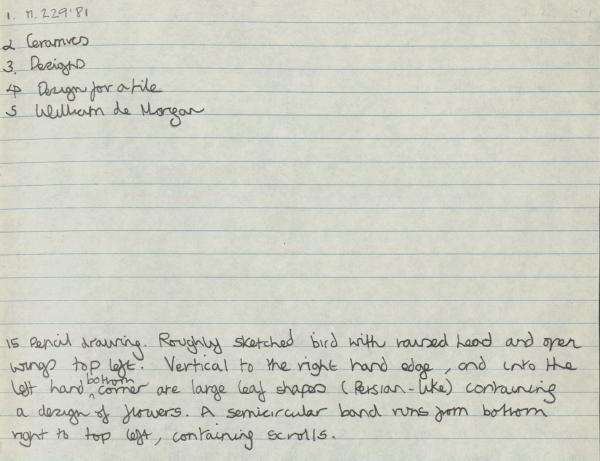 1. M.229'81
2 Ceramics
3. Designs
4 Design for a tile
5 William de Morgan
15 Pencil drawing. Roughly sketched bird with raised head and open
wings top left. Vertical to the right hand edge, and into the
left hand bottom corner are large leaf shapes (Persian-like) containing
a design of flowers. A semicircular band runs from bottom
right to top left, containing scrolls.